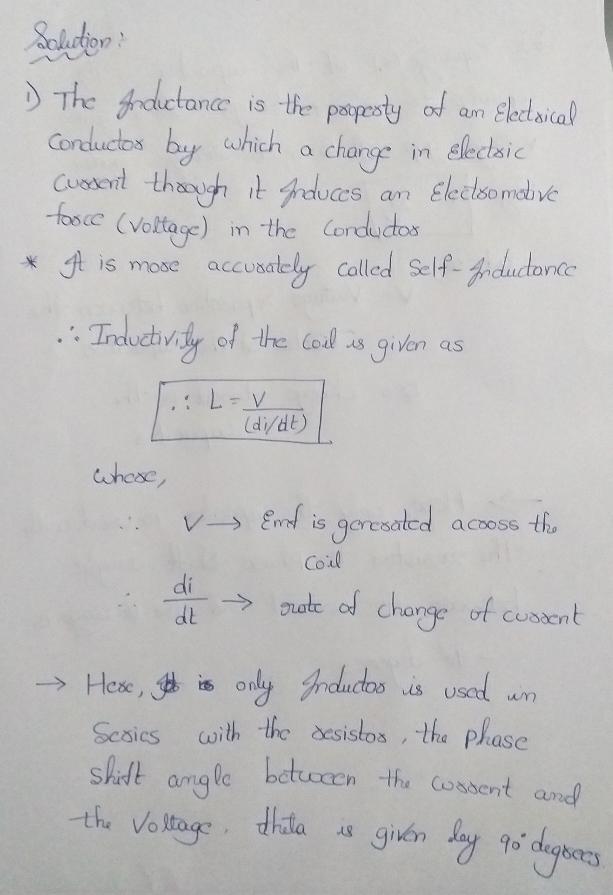 Solution:
1) The Inductance is the property of an Electrical
Conductor by which a change in electric
Current through it Induces an Electromotive
force (Voltage) in the Conductor
* It is more accurately called Self-Inductance
∴ Inductivity of the coil is given as
∴ L = V/(di/dt)
where,
∴ V → Emf is generated across the
coil
∴ di/dt → rate of change of current
→ Here, only Inductor is used in
Series with the resistor, the phase
shift angle between the current and
the Voltage, theta is given by 90° degrees